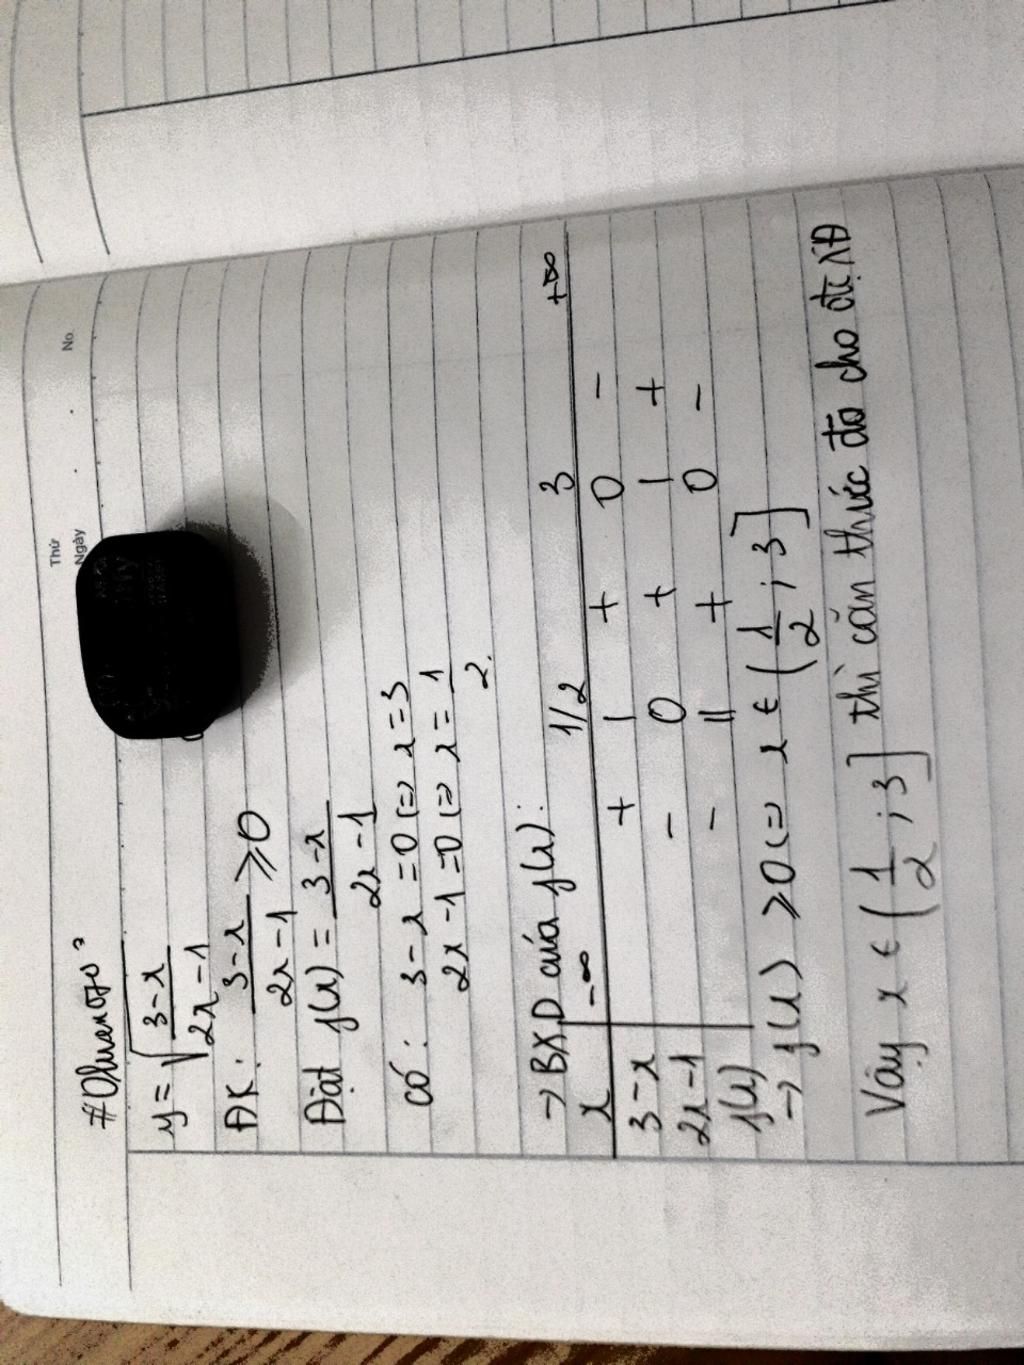 Thứ
Ngày
No.
y = √(3-x / 2x-1)
ĐK: 3-x / 2x-1 ⩾ 0
Đặt f(x) = 3-x / 2x-1
Có: 3-x = 0 (=> x = 3
2x-1 = 0 (=> x = 1/2.
→ BXD của f(x):
x -∞ 1/2 3 +∞
3-x + | + 0 -
2x-1 - 0 + | +
f(x) - || + 0 -
→ f(x) ⩾ 0 (=> x ∈ (1/2 ; 3]
Vậy x ∈ (1/2 ; 3] thì căn thức đã cho đc XĐ